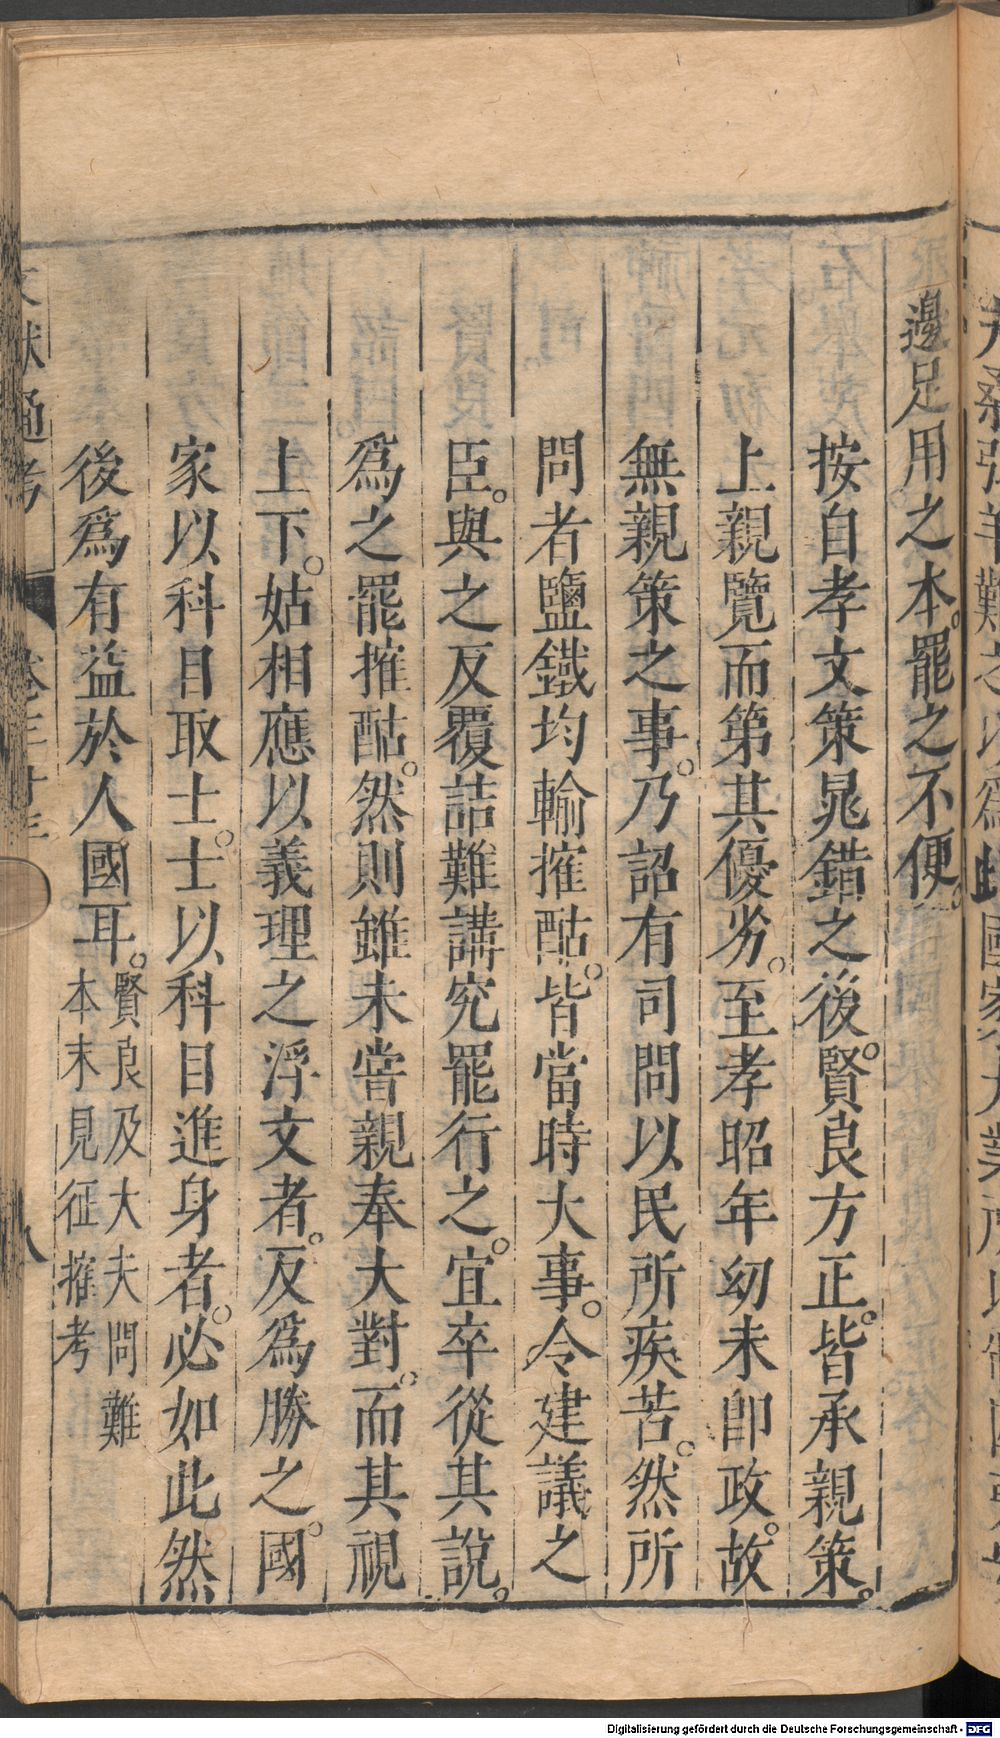 邊足用之本。罷之不便。
按自孝文策晁錯之後。賢良方正。皆承親策。
上親覽而第其優劣。至孝昭年幼未卽政。故
無親策之事。乃詔有司問以民所疾苦。然所
問者鹽鐵均輸搉酤。皆當時大事。令建議之
臣。與之反覆詰難講究罷行之。宜卒從其說。
爲之罷搉酤。然則雖未嘗親奉大對。而其視
上下。姑相應以義理之浮文者。反爲勝之。國
家以科目取士。士以科目進身者。必如此然
後爲有益於人國耳。賢良及大夫問難
本末見征搉考
文獻通考
Digitalisierung gefördert durch die Deutsche Forschungsgemeinschaft - DFG